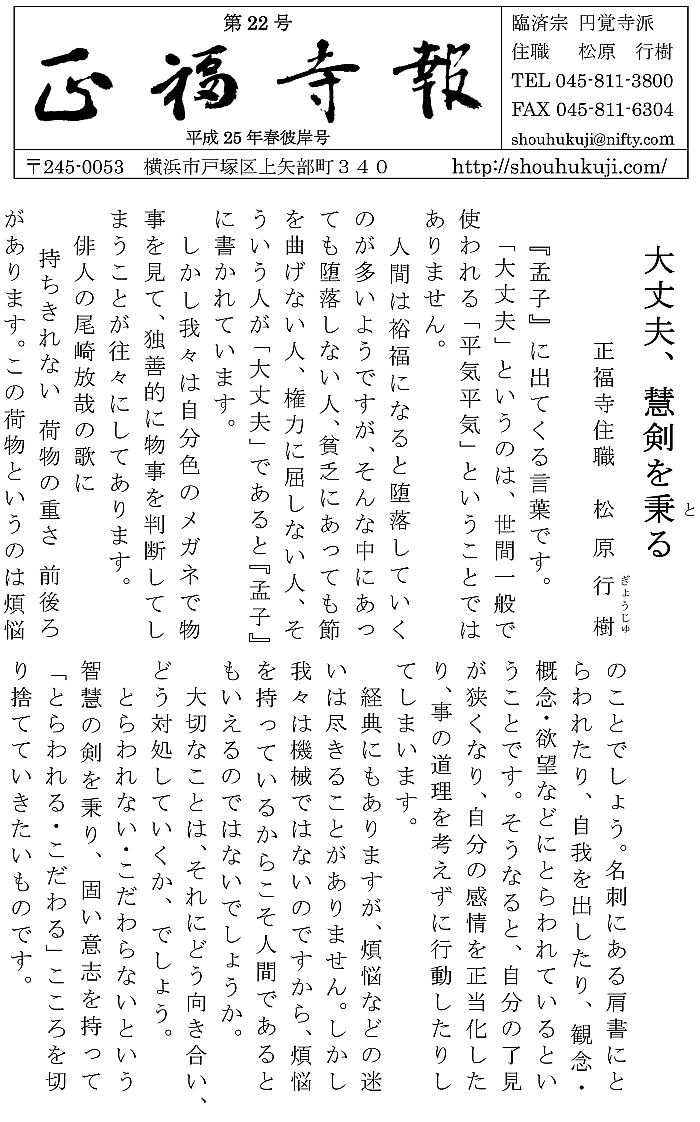 第22号
正福寺報
平成25年春彼岸号
臨済宗 円覚寺派
住職 松原 行樹
TEL 045-811-3800
FAX 045-811-6304
shouhukuji@nifty.com
〒245-0053 横浜市戸塚区上矢部町３４０ http://shouhukuji.com/
大丈夫、慧剣を秉る
と
正福寺住職 松原行樹
ぎょうじゅ
『孟子』に出てくる言葉です。
「大丈夫」というのは、世間一般で
使われる「平気平気」ということでは
ありません。
人間は裕福になると堕落していく
のが多いようですが、そんな中にあっ
ても堕落しない人、貧乏にあっても節
を曲げない人、権力に屈しない人、そ
ういう人が「大丈夫」であると『孟子』
に書かれています。
しかし我々は自分色のメガネで物
事を見て、独善的に物事を判断してし
まうことが往々にしてあります。
俳人の尾崎放哉の歌に
持ちきれない 荷物の重さ 前後ろ
があります。この荷物というのは煩悩
のことでしょう。名刺にある肩書にと
らわれたり、自我を出したり、観念・
概念・欲望などにとらわれているとい
うことです。そうなると、自分の了見
が狭くなり、自分の感情を正当化した
り、事の道理を考えずに行動したりし
てしまいます。
経典にもありますが、煩悩などの迷
いは尽きることがありません。しかし
我々は機械ではないのですから、煩悩
を持っているからこそ人間であると
もいえるのではないでしょうか。
大切なことは、それにどう向き合い、
どう対処していくか、でしょう。
とらわれない・こだわらないという
智慧の剣を秉り、固い意志を持って
「とらわれる・こだわる」こころを切
り捨てていきたいものです。